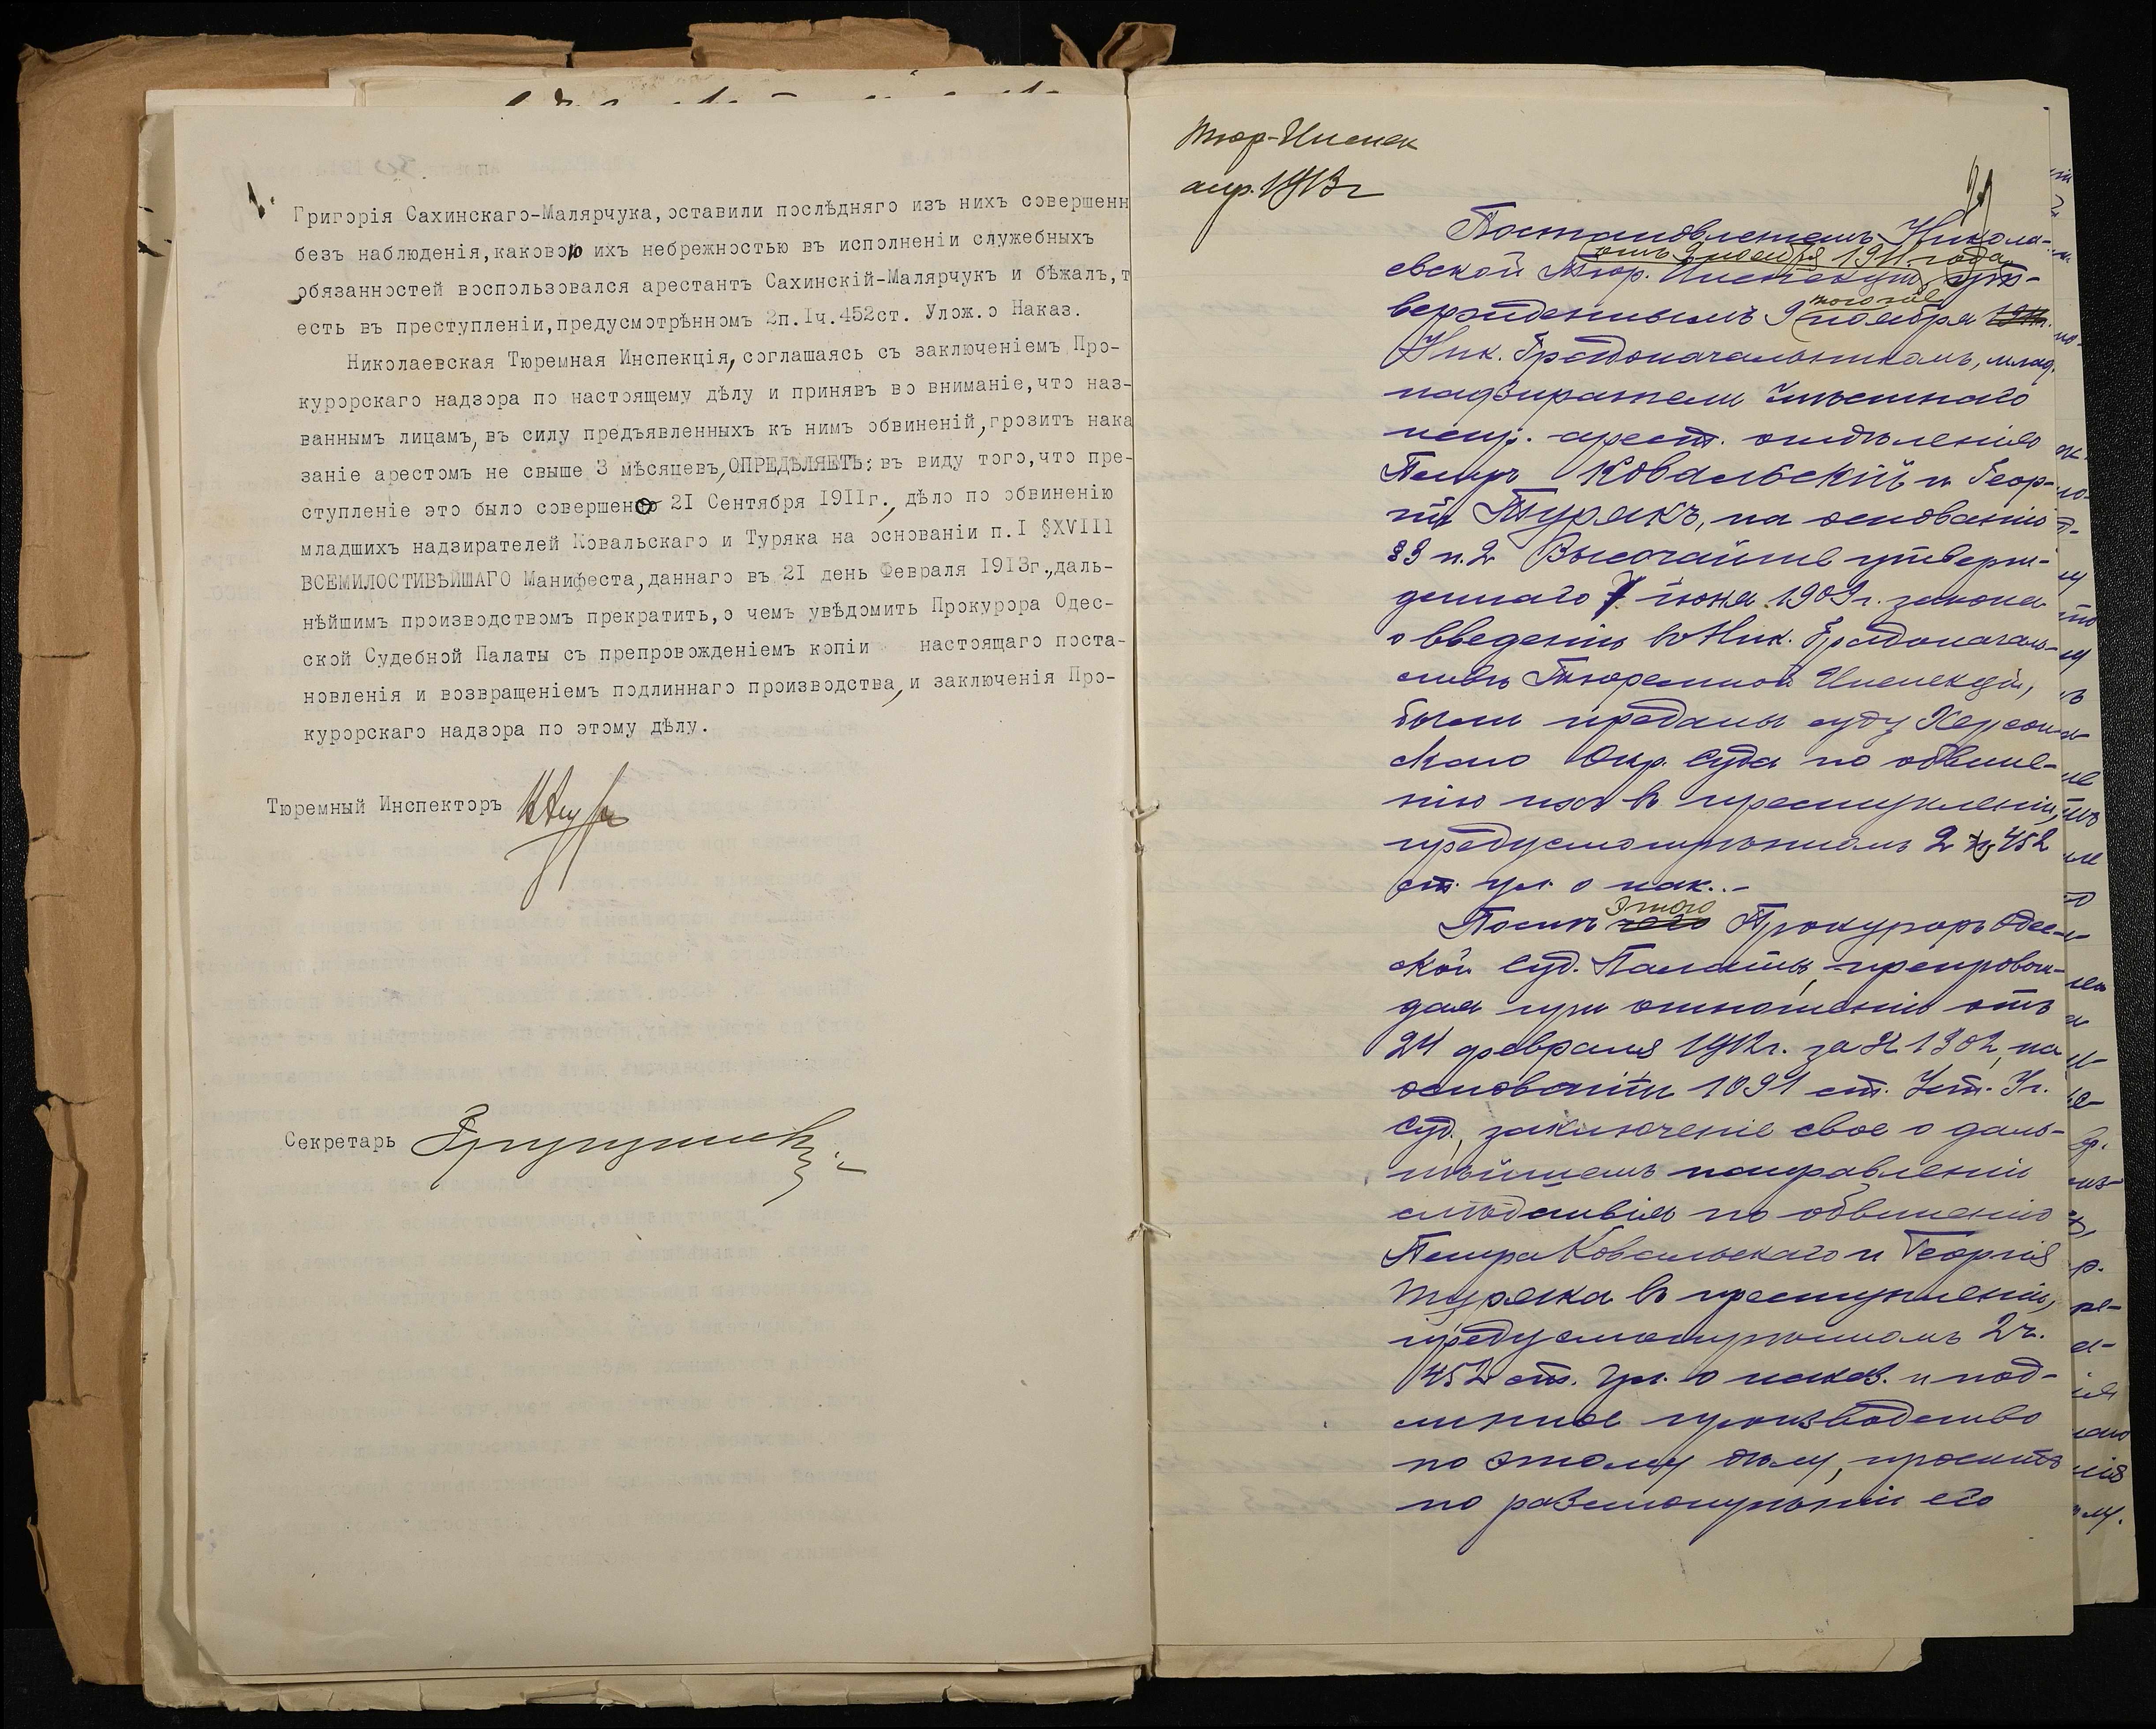 Григорія Сахинскаго-Малярчука, оставили послѣдняго изъ нихъ совершенн
безъ наблюденія, каковою ихъ небрежностью въ исполненіи служебныхъ
обязанностей воспользовался арестантъ Сахинскій-Малярчукъ и бѣжалъ, т
есть въ преступленіи, предусмотрѣнномъ 2п.Iч.452ст. Улож.о Наказ.
Николаевская Тюремная Инспекція, соглашаясь съ заключеніемъ Про-
курорскаго надзора по настоящему дѣлу и принявъ во вниманіе, что наз-
ваннымъ лицамъ, въ силу предъявленныхъ къ нимъ обвиненій, грозитъ нака
заніе арестомъ не свыше 3 мѣсяцевъ, ОПРЕДѢЛЯЕТЪ: въ виду того, что пре-
ступленіе это было совершено 21 Сентября 1911г., дѣло по обвиненію
младшихъ надзирателей Ковальскаго и Туряка на основаніи п.I §XVIII
ВСЕМИЛОСТИВѢЙШАГО Манифеста, даннаго въ 21 день Февраля 1913г., даль-
нѣйшимъ производствомъ прекратить, о чемъ увѣдомить Прокурора Одес-
ской Судебной Палаты съ препровожденіемъ копіи настоящаго поста-
новленія и возвращеніемъ подлиннаго производства, и заключенія Про-
курорскаго надзора по этому дѣлу.
Тюремный Инспекторъ
Секретарь
Тюр-Инспек
апр. 1913г
Постановленіемъ Никола-
отъ 9 ноября 1911 года
евской Тюр. Инспекціи, ут-
того же
вержденнымъ 9 ноября
Ник. Градоначальникомъ, млад.
надзиратели Мѣстнаго
испр. арест. отдѣленія
Петръ Ковальскій и Геор-
гій Турякъ, на основаніи
§3 п.2 Высочайше утверж-
деннаго 7 іюня 1909г. закона
о введеніи въ Ник. Градоначаль-
ствѣ Тюремной Инспекціи,
были преданы суду Херсон-
скаго Окр. Суда по обвине-
нію ихъ въ преступленіи,
предусмотрѣнномъ 2 ч 452
ст. ул. о нак. -
этого
Послѣ Прокуроръ Одес-
ской Суд. Палаты, препровож-
дая при отношеніи отъ
24 февраля 1912г. за № 1302, на
основаніи 1091 ст. Уст. Уг.
Суд., заключеніе свое о даль-
нѣйшемъ направленіи
слѣдствія по обвиненію
Петра Ковальскаго и Георгія
Туряка въ преступленіи,
предусмотрѣнномъ 2ч.
452 ст. Ул. о наказ. и под-
линное производство
по этому дѣлу, проситъ
по разсмотрѣніи его